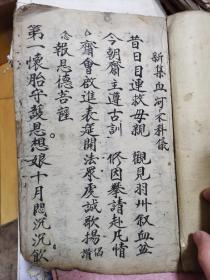 新集血河木科儀
昔日目連救母親　觀見羽州叹血盆
今朝齋主遵古訓　修因發請赴凡情
齋會啟進表延開法眾虔誠歌揚偈讚
念報恩德菩薩
第一懷胎守護恩想娘十月悶沉沉飲